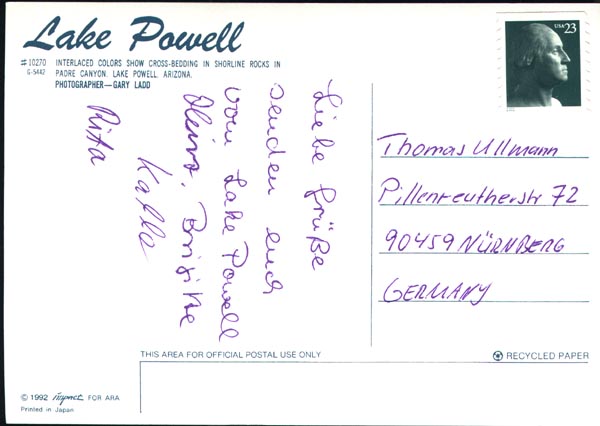 Lake Powell
#10270 INTERLACED COLORS SHOW CROSS-BEDDING IN SHORLINE ROCKS IN
G-5442 PADRE CANYON, LAKE POWELL, ARIZONA.
PHOTOGRAPHER—GARY LADD
USA 23
Liebe Grüße
senden euch
vom Lake Powell
Brigitte
Kalla
Rita
Thomas Ullmann
Pillenreutherstr 72
90459 NÜRNBERG
GERMANY
THIS AREA FOR OFFICIAL POSTAL USE ONLY
RECYCLED PAPER
© 1992 impact FOR ARA
Printed in Japan